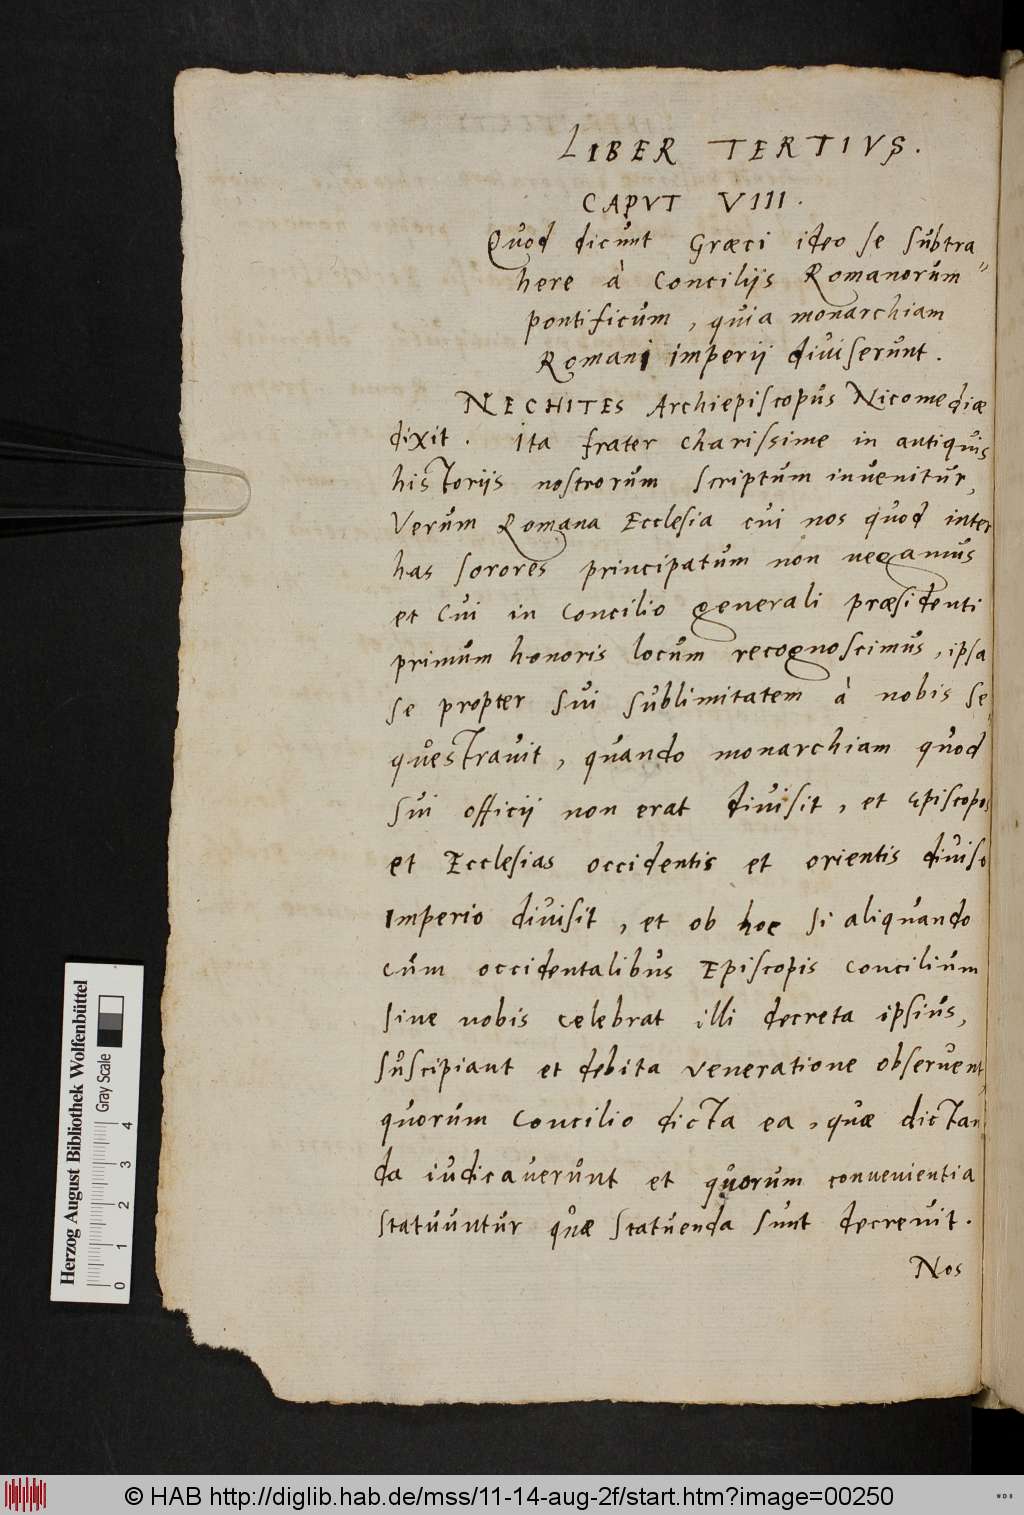 LIBER TERTIVS.
CAPVT VIII.
Quod dicunt Græci ideo se subtra
here à Conciliis Romanorum
pontificum, quia monarchiam
Romani imperii diuiserunt.
NECHITES Archiepiscopus Nicomediæ
dixit. Ita frater charissime in antiquis
historiis nostrorum scriptum inuenitur,
Verum Romana Ecclesia cui nos quod inter
has sorores principatum non negamus
et cui in concilio generali præsidenti
primum honoris locum recognoscimus, ipsa
se propter sui sublimitatem à nobis se
questrauit, quando monarchiam quod
sui officii non erat diuisit, et Episcopos
et Ecclesias occidentis et orientis diuiso
imperio diuisit, et ob hoc si aliquando
cum occidentalibus Episcopis concilium
sine nobis celebrat illi decreta ipsius,
suscipiant et debita veneratione obseruent,
quorum concilio dicta ea, quæ dictan
da iudicauerunt et quorum conuenientia
statuuntur quæ statuenda sunt decreuit.
Nos
Herzog August Bibliothek Wolfenbüttel
Gray Scale
0 1 2 3 4
© HAB http://diglib.hab.de/mss/11-14-aug-2f/start.htm?image=00250